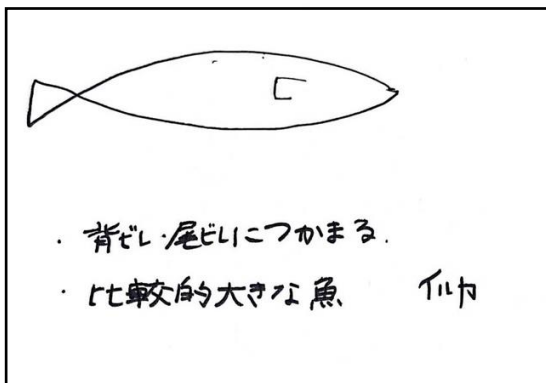 ・背ビレ・尾ビレにつかまる.
・比較的大きな魚　イルカ